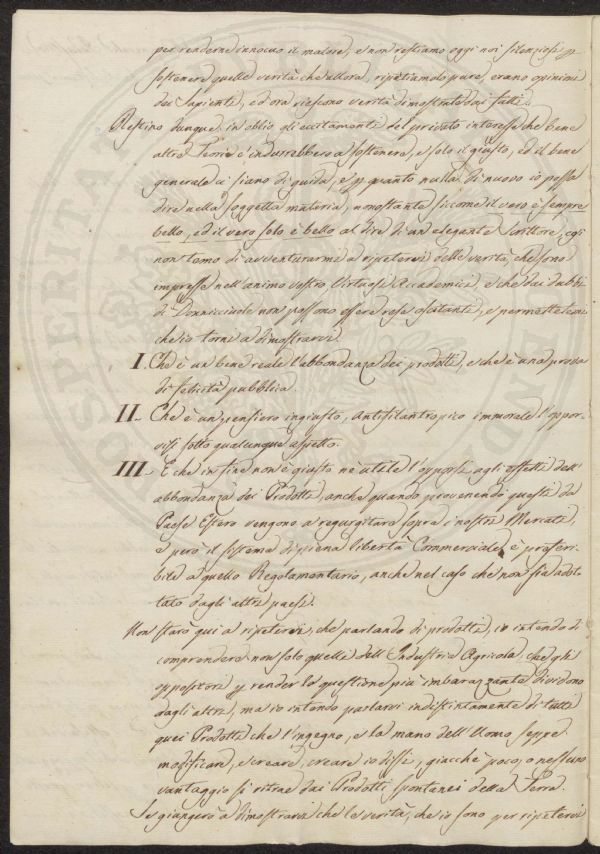 per renderne innocuo il malore, e non restiamo oggi noi silenziosi p
sostenere quelle verità che allora, ripetiamolo pure, erano opinioni
dei Sapienti, ed ora riescono verità dimostrate dai fatti.
Restino dunque in oblio gli eccitamenti del privato interesse che bene
altre Teorie c'indurrebbero a sostenere, e solo il giusto, ed il bene
generale ci siano di guida, e p quanto nulla di nuovo io possa
dire nella soggetta materia, nonostante siccome il vero è sempre
bello, ed il vero solo è bello al dire di un elegante Scrittore, egi
non temo di avventurarmi a ripetervi delle verità, che sono
impresse nell'animo vostro Virtuosi Accademici, e che dai dubbi
di Donnicciuole non possono essere rese esitanti, e permettetemi
che io torni a dimostrarvi.
I. Che è un bene reale l'abbondanza dei prodotti, e che è una prova
di felicità pubblica.
II. Che è un pensiero ingiusto, antifilantropico immorale l'oppor-
visi sotto qualunque aspetto.
III. E che infine non è giusto nè utile l'opporsi agli effetti dell'
abbondanza dei Prodotti, anche quando provenendo questi da
Paese Estero vengono a regurgitare sopra i nostri Mercati,
e però il sistema di piena libertà Commerciale è preferi-
bile a quello Regolamentario, anche nel caso che non sia adot-
tato dagli altri paesi.
Non starò qui a ripetervi, che parlando di prodotti, io intendo di
comprendere non solo quelli dell'Industria Agricola, che gli
oppositori p render la questione più imbarazzante dividono
dagli altri, ma io intendo parlarvi indistintamente di tutti
quei Prodotti che l'ingegno, e la mano dell'Uomo seppe
modificare, e creare, creare io dissi, giacchè poco, o nessuno
vantaggio si ritrae dai Prodotti spontanei della Terra.
Se giungerò a dimostrarvi che le verità, che io sono per ripetervi
PROSPERITATI